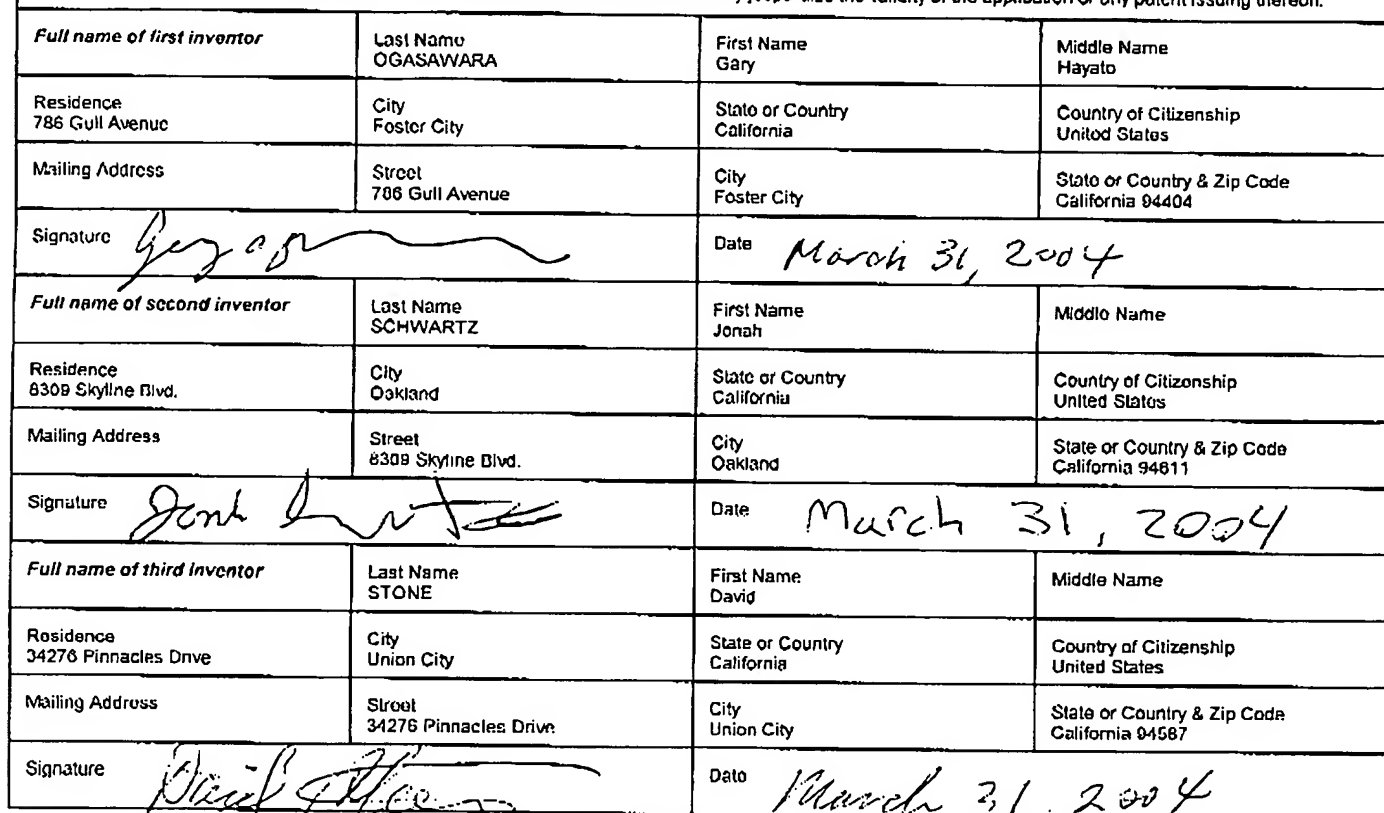 the validity of the application or any patent issuing thereon.
Full name of first inventor
Last Name
OGASAWARA
First Name
Gary
Middle Name
Hayato
Residence
786 Gull Avenue
City
Foster City
State or Country
California
Country of Citizenship
United States
Mailing Address
Street
786 Gull Avenue
City
Foster City
State or Country & Zip Code
California 94404
Signature
Date March 31, 2004
Full name of second inventor
Last Name
SCHWARTZ
First Name
Jonah
Middle Name
Residence
8309 Skyline Blvd.
City
Oakland
State or Country
California
Country of Citizenship
United States
Mailing Address
Street
8309 Skyline Blvd.
City
Oakland
State or Country & Zip Code
California 94611
Signature
Date March 31, 2004
Full name of third inventor
Last Name
STONE
First Name
David
Middle Name
Residence
34276 Pinnacles Drive
City
Union City
State or Country
California
Country of Citizenship
United States
Mailing Address
Street
34276 Pinnacles Drive
City
Union City
State or Country & Zip Code
California 94587
Signature David Stone
Date March 31, 2004